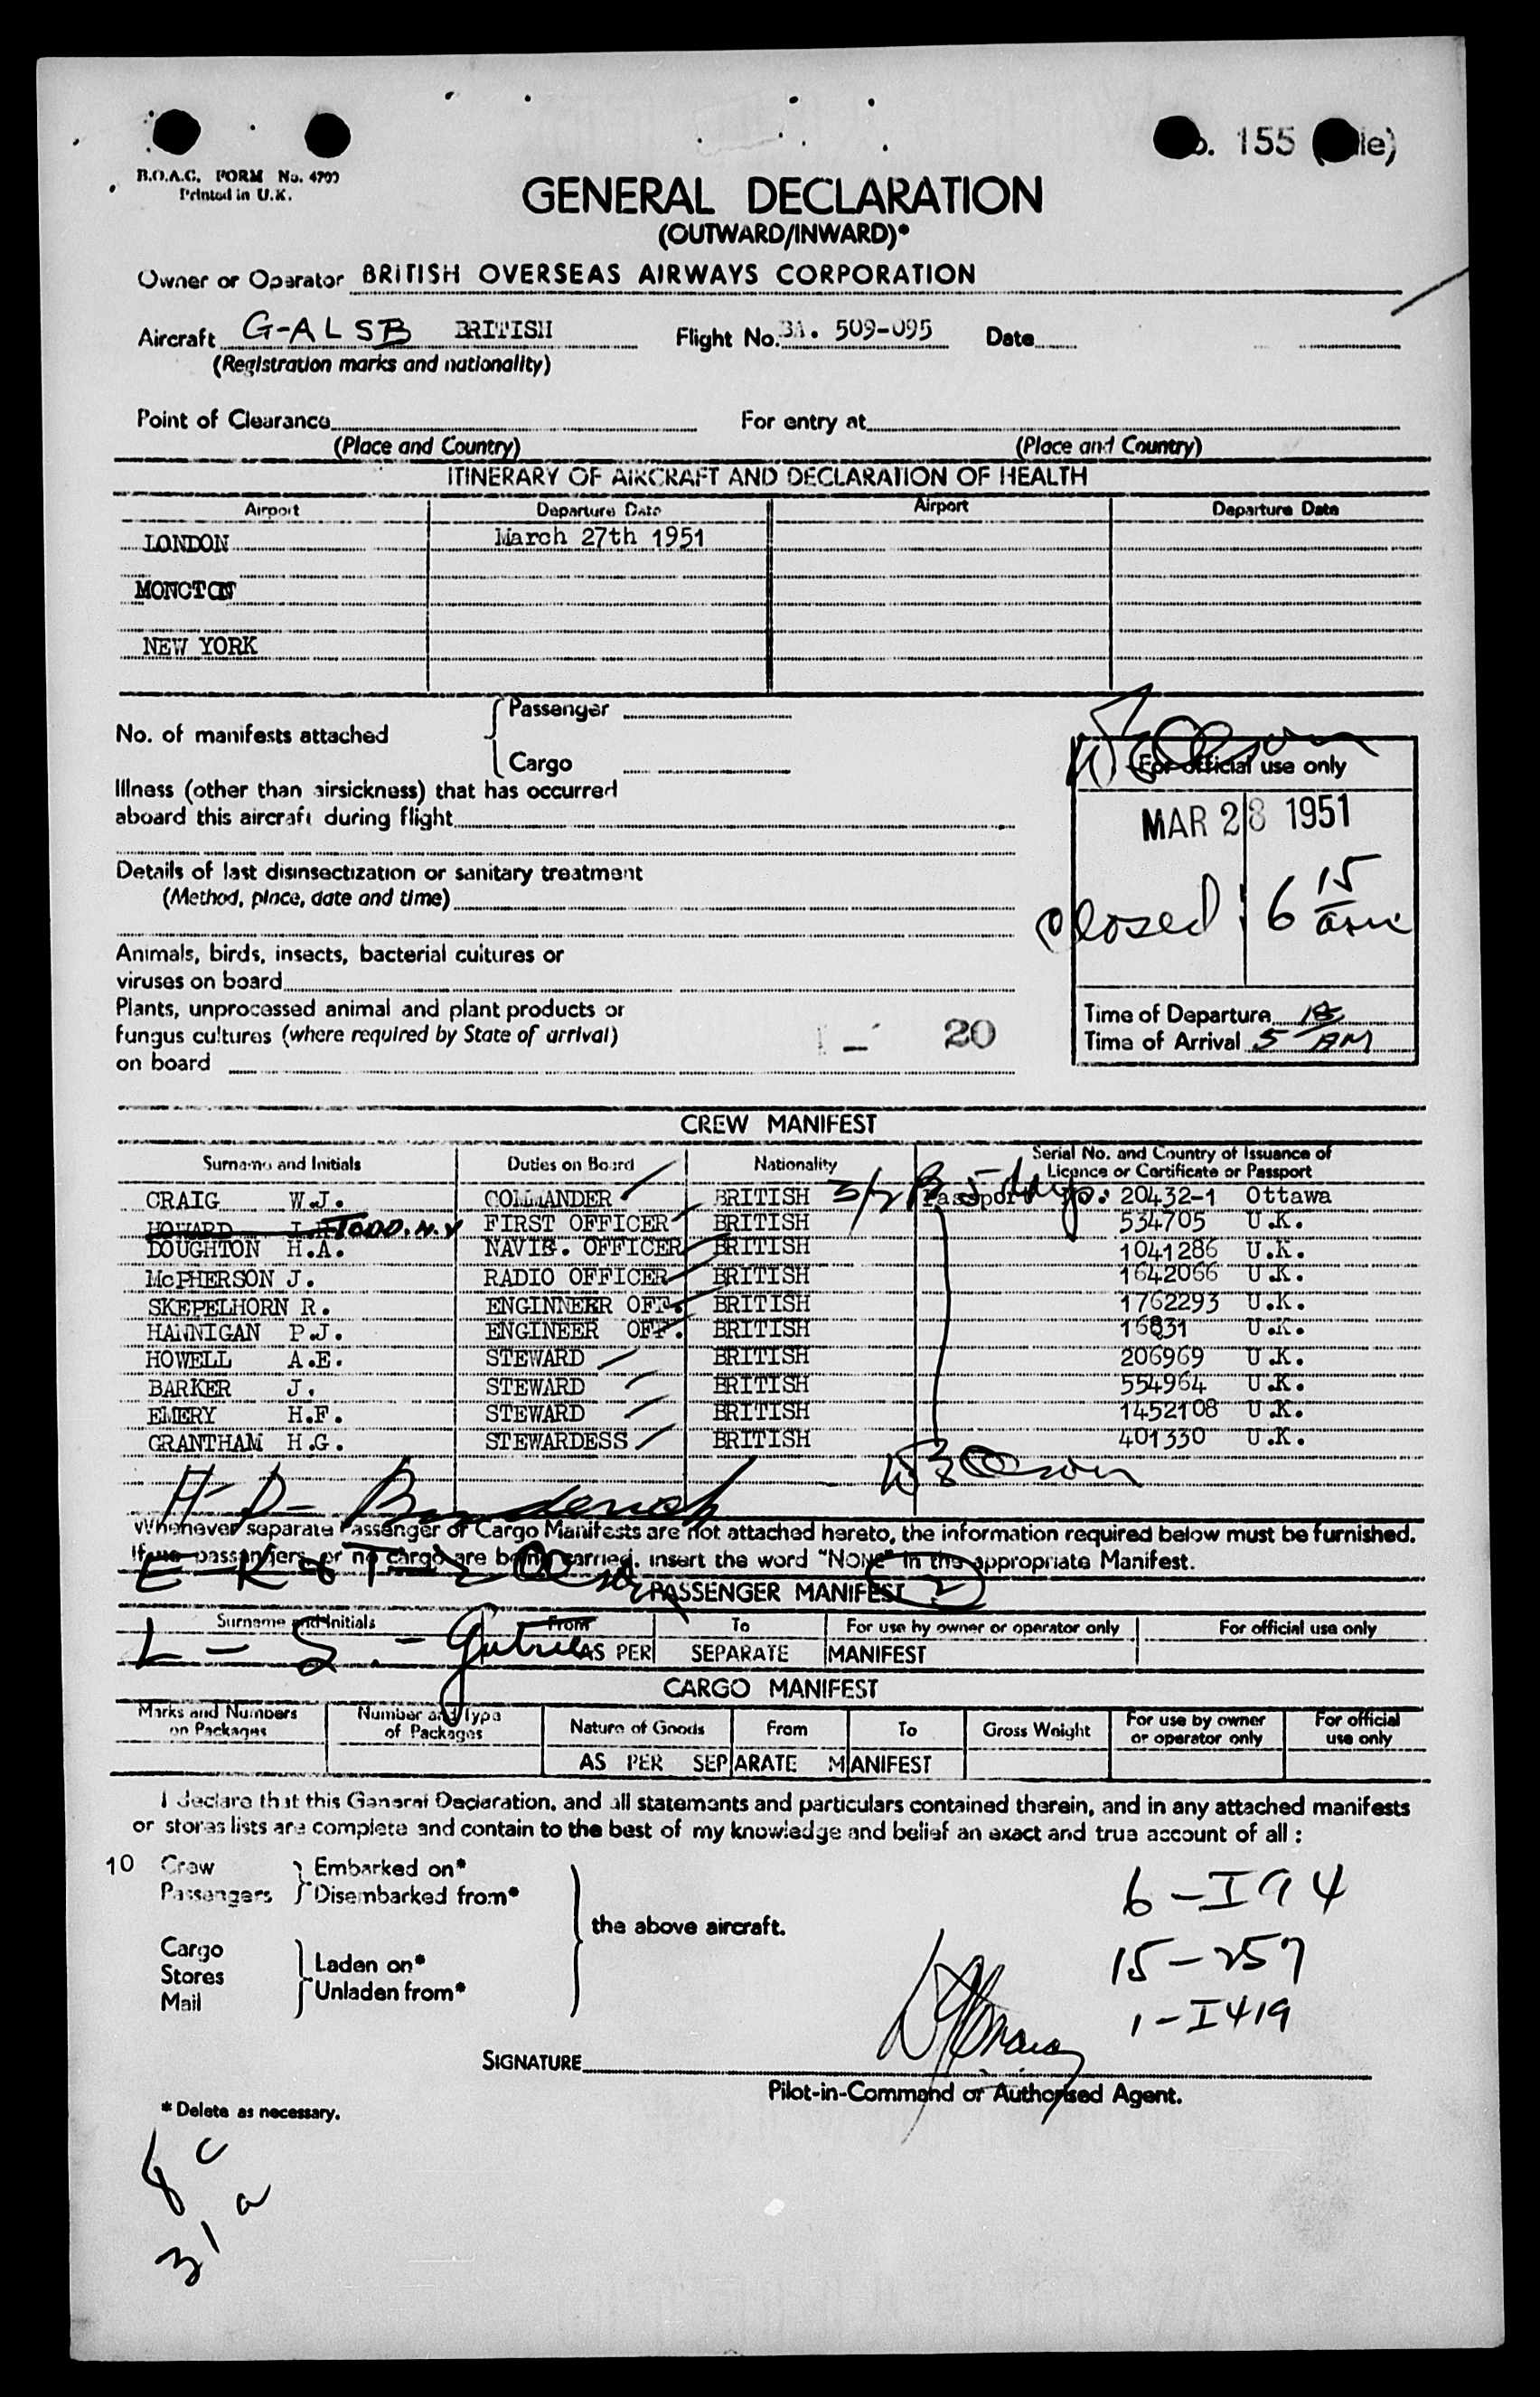 155
B.O.A.C. FORM No. 4700
Printed in U.K.
GENERAL DECLARATION
(OUTWARD/INWARD)*
Owner or Operator BRITISH OVERSEAS AIRWAYS CORPORATION
Aircraft G-ALSB BRITISH Flight No. BA. 509-095 Date
(Registration marks and nationality)
Point of Clearance For entry at
(Place and Country) (Place and Country)
ITINERARY OF AIRCRAFT AND DECLARATION OF HEALTH
Airport Departure Date Airport Departure Date
LONDON March 27th 1951
MONCTON
NEW YORK
No. of manifests attached
Passenger
Cargo
Illness (other than airsickness) that has occurred
aboard this aircraft during flight
Details of last disinsectization or sanitary treatment
(Method, place, date and time)
Animals, birds, insects, bacterial cultures or
viruses on board
Plants, unprocessed animal and plant products or
fungus cultures (where required by State of arrival)
on board
- 20
For official use only
MAR 28 1951
Closed 6 15 am
Time of Departure
Time of Arrival 5 15 AM
CREW MANIFEST
Surname and Initials Duties on Board Nationality Serial No. and Country of Issuance of
Licence or Certificate or Passport
CRAIG W.J. COMMANDER BRITISH Passport No: 20432-1 Ottawa
HOWARD TODD. H.Y FIRST OFFICER BRITISH 534705 U.K.
DOUGHTON H.A. NAVIG. OFFICER BRITISH 1041286 U.K.
McPHERSON J. RADIO OFFICER BRITISH 1642066 U.K.
SKEPELHORN R. ENGINNEER OFF. BRITISH 1762293 U.K.
HANNIGAN P.J. ENGINEER OFF. BRITISH 16831 U.K.
HOWELL A.E. STEWARD BRITISH 206969 U.K.
BARKER J. STEWARD BRITISH 554964 U.K.
EMERY H.F. STEWARD BRITISH 1452108 U.K.
GRANTHAM H.G. STEWARDESS BRITISH 401330 U.K.
Whenever separate Passenger or Cargo Manifests are not attached hereto, the information required below must be furnished.
If no passengers, or no cargo are being carried, insert the word "NONE" in the appropriate Manifest.
PASSENGER MANIFEST 2
Surname and Initials From To For use by owner or operator only For official use only
AS PER SEPARATE MANIFEST
CARGO MANIFEST
Marks and Numbers on Packages Number and Type of Packages Nature of Goods From To Gross Weight For use by owner or operator only For official use only
AS PER SEPARATE MANIFEST
I declare that this General Declaration, and all statements and particulars contained therein, and in any attached manifests
or stores lists are complete and contain to the best of my knowledge and belief an exact and true account of all :
10 Crew
Passengers
Embarked on*
Disembarked from*
Cargo
Stores
Mail
Laden on*
Unladen from*
the above aircraft.
6 - I 94
15 - 257
1 - I 419
SIGNATURE
Pilot-in-Command or Authorised Agent.
* Delete as necessary.
8 c
31 a